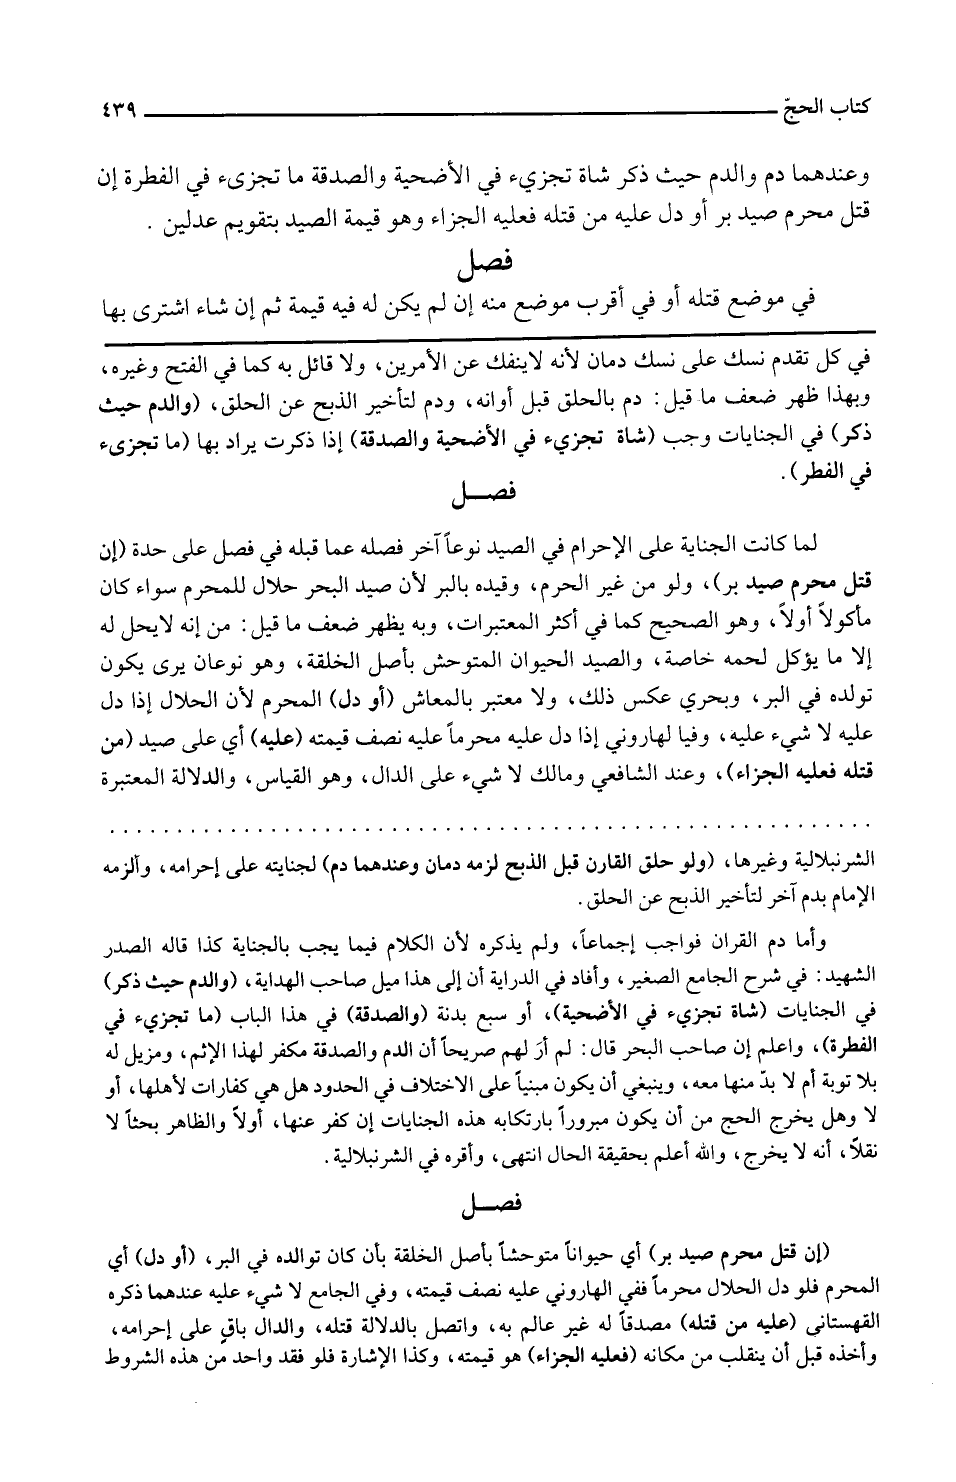 كتاب الحجّ ٤٣٩
وعندهما دم والدم حيث ذكر شاة تجزيء في الأضحية والصدقة ما تجزىء في الفطرة إن
قتل محرم صيد بر أو دل عليه من قتله فعليه الجزاء وهو قيمة الصيد بتقويم عدلين .
فصل
في موضع قتله أو في أقرب موضع منه إن لم يكن له فيه قيمة ثم إن شاء اشترى بها
في كل تقدم نسك على نسك دمان لأنه لاينفك عن الأمرين، ولا قائل به كما في الفتح وغيره،
وبهذا ظهر ضعف ما قيل: دم بالحلق قبل أوانه، ودم لتأخير الذبح عن الحلق، (والدم حيث
ذكر) في الجنايات وجب (شاة تجزيء في الأضحية والصدقة) إذا ذكرت يراد بها (ما تجزىء
في الفطر).
فصــل
لما كانت الجناية على الإحرام في الصيد نوعاً آخر فصله عما قبله في فصل على حدة (إن
قتل محرم صيد بر)، ولو من غير الحرم، وقيده بالبر لأن صيد البحر حلال للمحرم سواء كان
مأكولاً أولاً، وهو الصحيح كما في أكثر المعتبرات، وبه يظهر ضعف ما قيل: من إنه لايحل له
إلا ما يؤكل لحمه خاصة، والصيد الحيوان المتوحش بأصل الخلقة، وهو نوعان يرى يكون
تولده في البر، وبحري عكس ذلك، ولا معتبر بالمعاش (أو دل) المحرم لأن الحلال إذا دل
عليه لا شيء عليه، وفيا لهاروني إذا دل عليه محرماً عليه نصف قيمته (عليه) أي على صيد (من
قتله فعليه الجزاء)، وعند الشافعي ومالك لا شيء على الدال، وهو القياس، والدلالة المعتبرة
الشرنبلالية وغيرها، (ولو حلق القارن قبل الذبح لزمه دمان وعندهما دم) لجنايته على إحرامه، وألزمه
الإمام بدم آخر لتأخير الذبح عن الحلق.
وأما دم القران فواجب إجماعاً، ولم يذكره لأن الكلام فيما يجب بالجناية كذا قاله الصدر
الشهيد: في شرح الجامع الصغير، وأفاد في الدراية أن إلى هذا ميل صاحب الهداية، (والدم حيث ذكر)
في الجنايات (شاة تجزيء في الأضحية)، أو سبع بدنة (والصدقة) في هذا الباب (ما تجزيء في
الفطرة)، واعلم إن صاحب البحر قال: لم أرَ لهم صريحاً أن الدم والصدقة مكفر لهذا الإثم، ومزيل له
بلا توبة أم لا بدّ منها معه، وينبغي أن يكون مبنياً على الاختلاف في الحدود هل هي كفارات لأهلها، أو
لا وهل يخرج الحج من أن يكون مبروراً بارتكابه هذه الجنايات إن كفر عنها، أولاً والظاهر بحثاً لا
نقلاً، أنه لا يخرج، والله أعلم بحقيقة الحال انتهى، وأقره في الشرنبلالية.
فصــل
(إن قتل محرم صيد بر) أي حيواناً متوحشاً بأصل الخلقة بأن كان توالده في البر، (أو دل) أي
المحرم فلو دل الحلال محرماً ففي الهاروني عليه نصف قيمته، وفي الجامع لا شيء عليه عندهما ذكره
القهستانى (عليه من قتله) مصدقاً له غير عالم به، واتصل بالدلالة قتله، والدال باقٍ على إحرامه،
وأخذه قبل أن ينقلب من مكانه (فعليه الجزاء) هو قيمته، وكذا الإشارة فلو فقد واحد من هذه الشروط